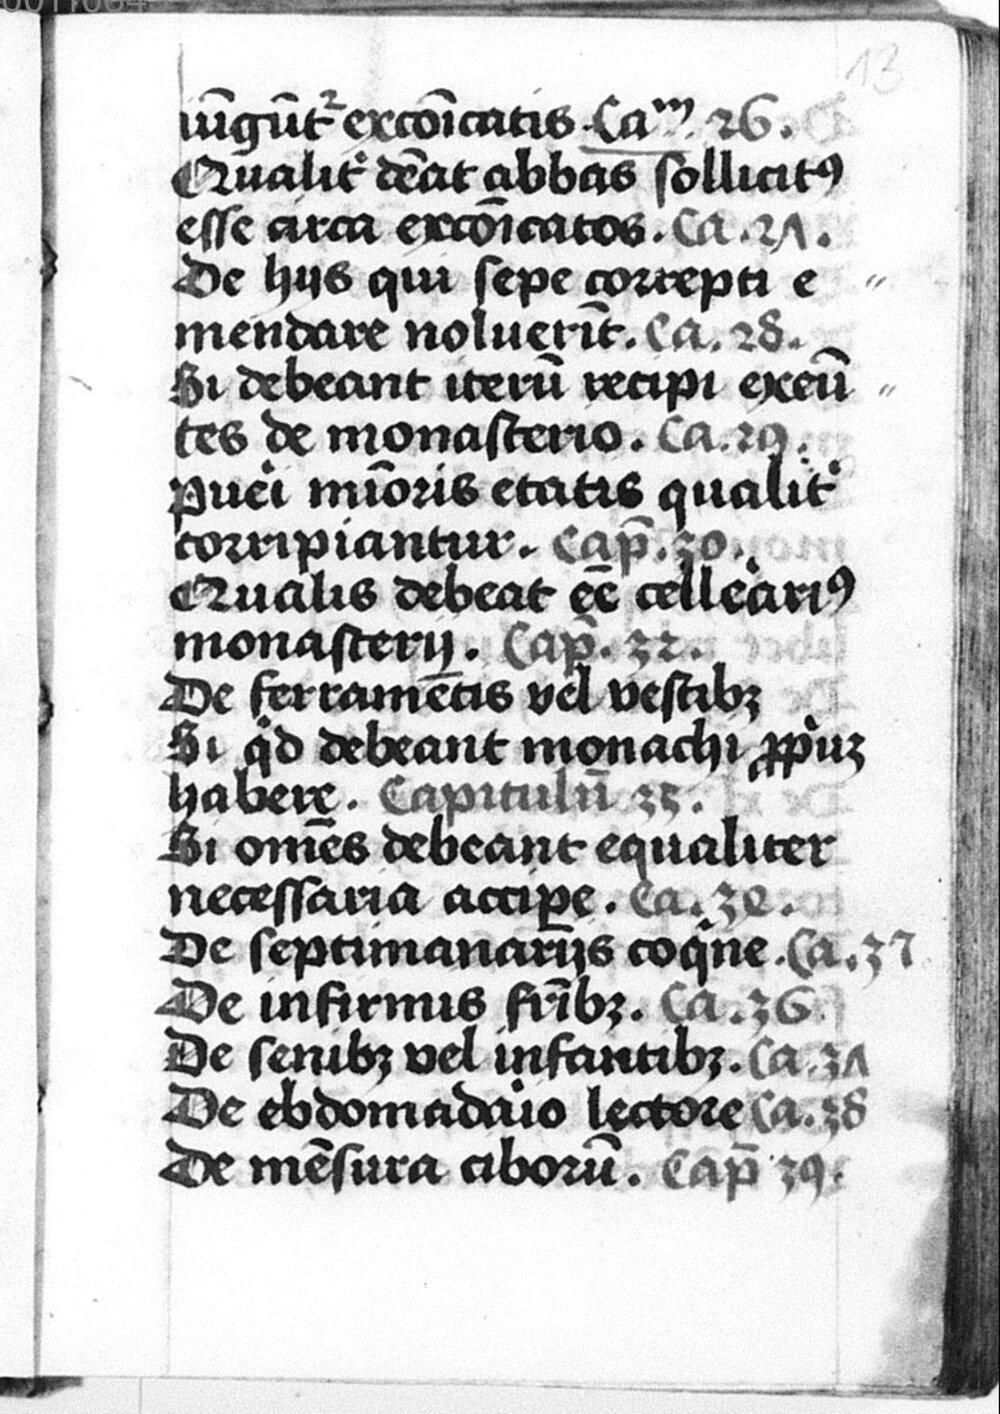 13
iūgūt᷑ excōicatis Caᵐ 26.
Qualit̉ dēat abbas sollicitꝰ
esse circa excōicatos. Ca. 27.
De hijs qui sepe correpti e
mendare noluerīt. Ca. 28.
Si debeant iterū recipi exeū
tes de monasterio. Ca. 29.
Pueͥi mīoris etatis qualit̉
corripiantur. Cap̄. 30.
Qualis debeat eē celleͣriꝰ
monasterij. Cap̄. 31.
De ferramētis vel vestibꝫ
Si qͥd debeant monachi ꝓpͥuꝫ
habere. Capitulū 33.
Si om̄es debeant equaliter
necessaria accipe. Ca. 34.
De septimanarijs coqͥne. Ca. 35
De infirmis fr̄ibꝫ. Ca. 36.
De senibꝫ vel infantibꝫ. Ca. 37
De ebdomadaͥio lectore Ca. 38
De mēsura ciborū. Cap̄ 39.